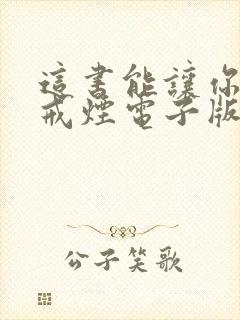 這書能讓你
戒煙電子版
公子笑歌